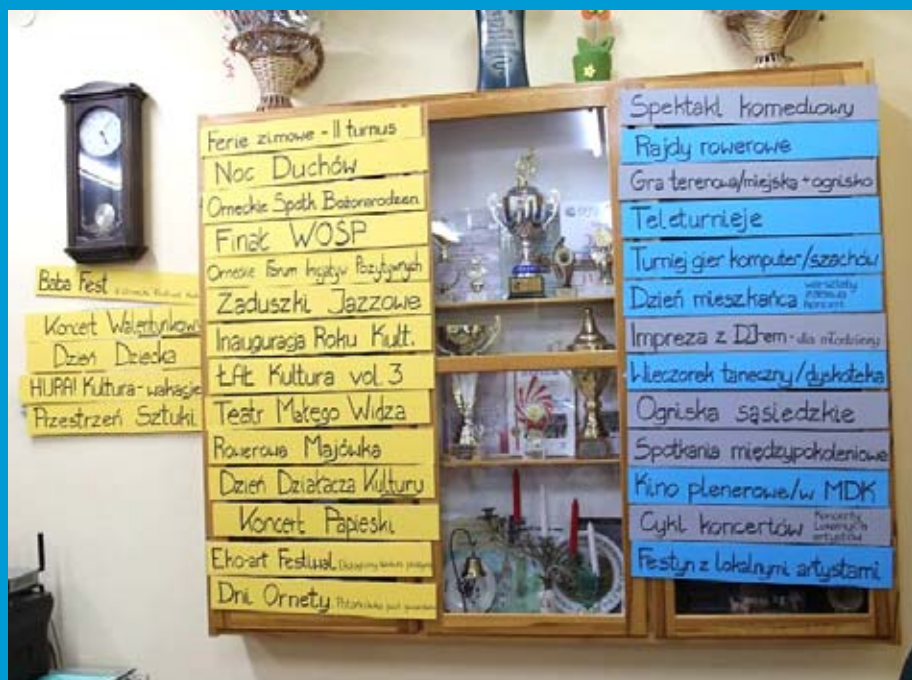 Baba Fest
Koncert Walentynkowy
Dzień Dziecka
HURA! Kultura - wakacje
Przestrzeń Sztuki
Ferie zimowe - II turnus
Noc Duchów
Orneckie Spotk Bożonarodzen
Finał WOŚP
Orneckie Forum Inicjatyw Pozytywnych
Zaduszki Jazzowe
Inauguracja Roku Kult.
ŁAŁ Kultura vol. 3
Teatr Małego Widza
Rowerowa Majówka
Dzień Działacza Kultury
Koncert Papieski
Eko-art Festiwal
Dni Ornety
Spektakl komediowy
Rajdy rowerowe
Gra terenowa/miejska + ognisko
Teleturnieje
Turniej gier komputer/szachów
Dzień mieszkańca warsztaty zabawa koncert
Impreza z DJ-em - dla młodzieży
Wieczorek taneczny/dyskoteka
Ogniska sąsiedzkie
Spotkania międzypokoleniowe
Kino plenerowe/w MDK
Cykl koncertów Koncerty Lokalnych artystów
Festyn z lokalnymi artystami